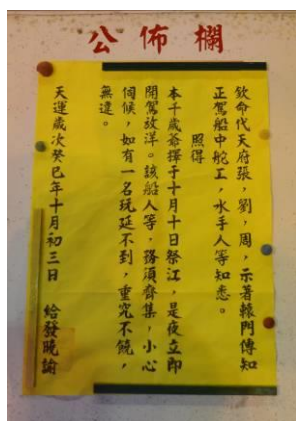 公佈欄
欽命代天府張，劉，周，示著轅門傳知
正駕船中舵工，水手人等知悉。
照得
本千歲爺擇于十月十日祭江，是夜立即
開駕放洋。該船人等，務須齊集，小心
伺候，如有一名玩延不到，重究不饒，
無違。
天運歲次癸巳年十月初三日　給發曉諭